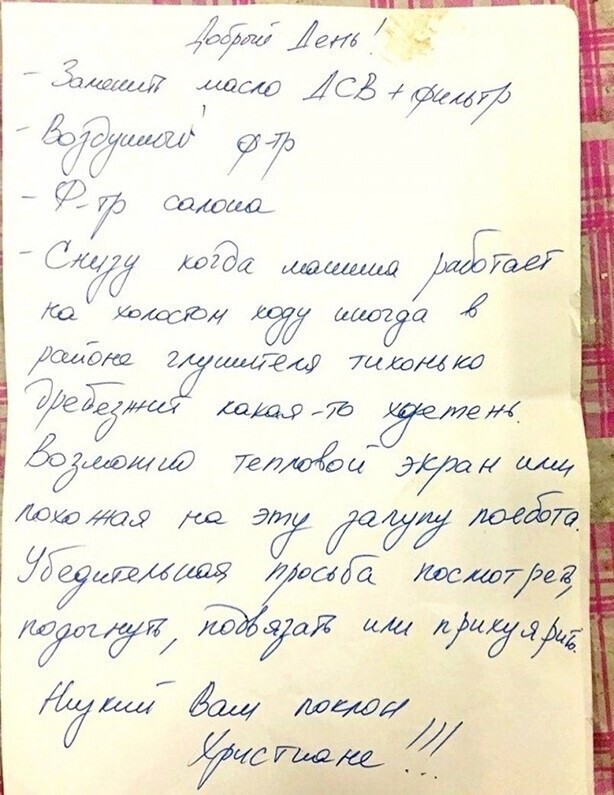 Добрый День!
- Заменить масло ДСВ + фильтр
- Воздушный ф-тр
- Ф-тр салона
- Снизу когда машина работает
на холостом ходу иногда в
районе глушителя тихонько
дребезжит какая-то хуетень.
Возможно тепловой экран или
похожая на эту залупу поебота.
Убедительная просьба посмотреть,
подогнуть, подвязать или прихуярить.
Низкий Вам поклон
Христиане!!!